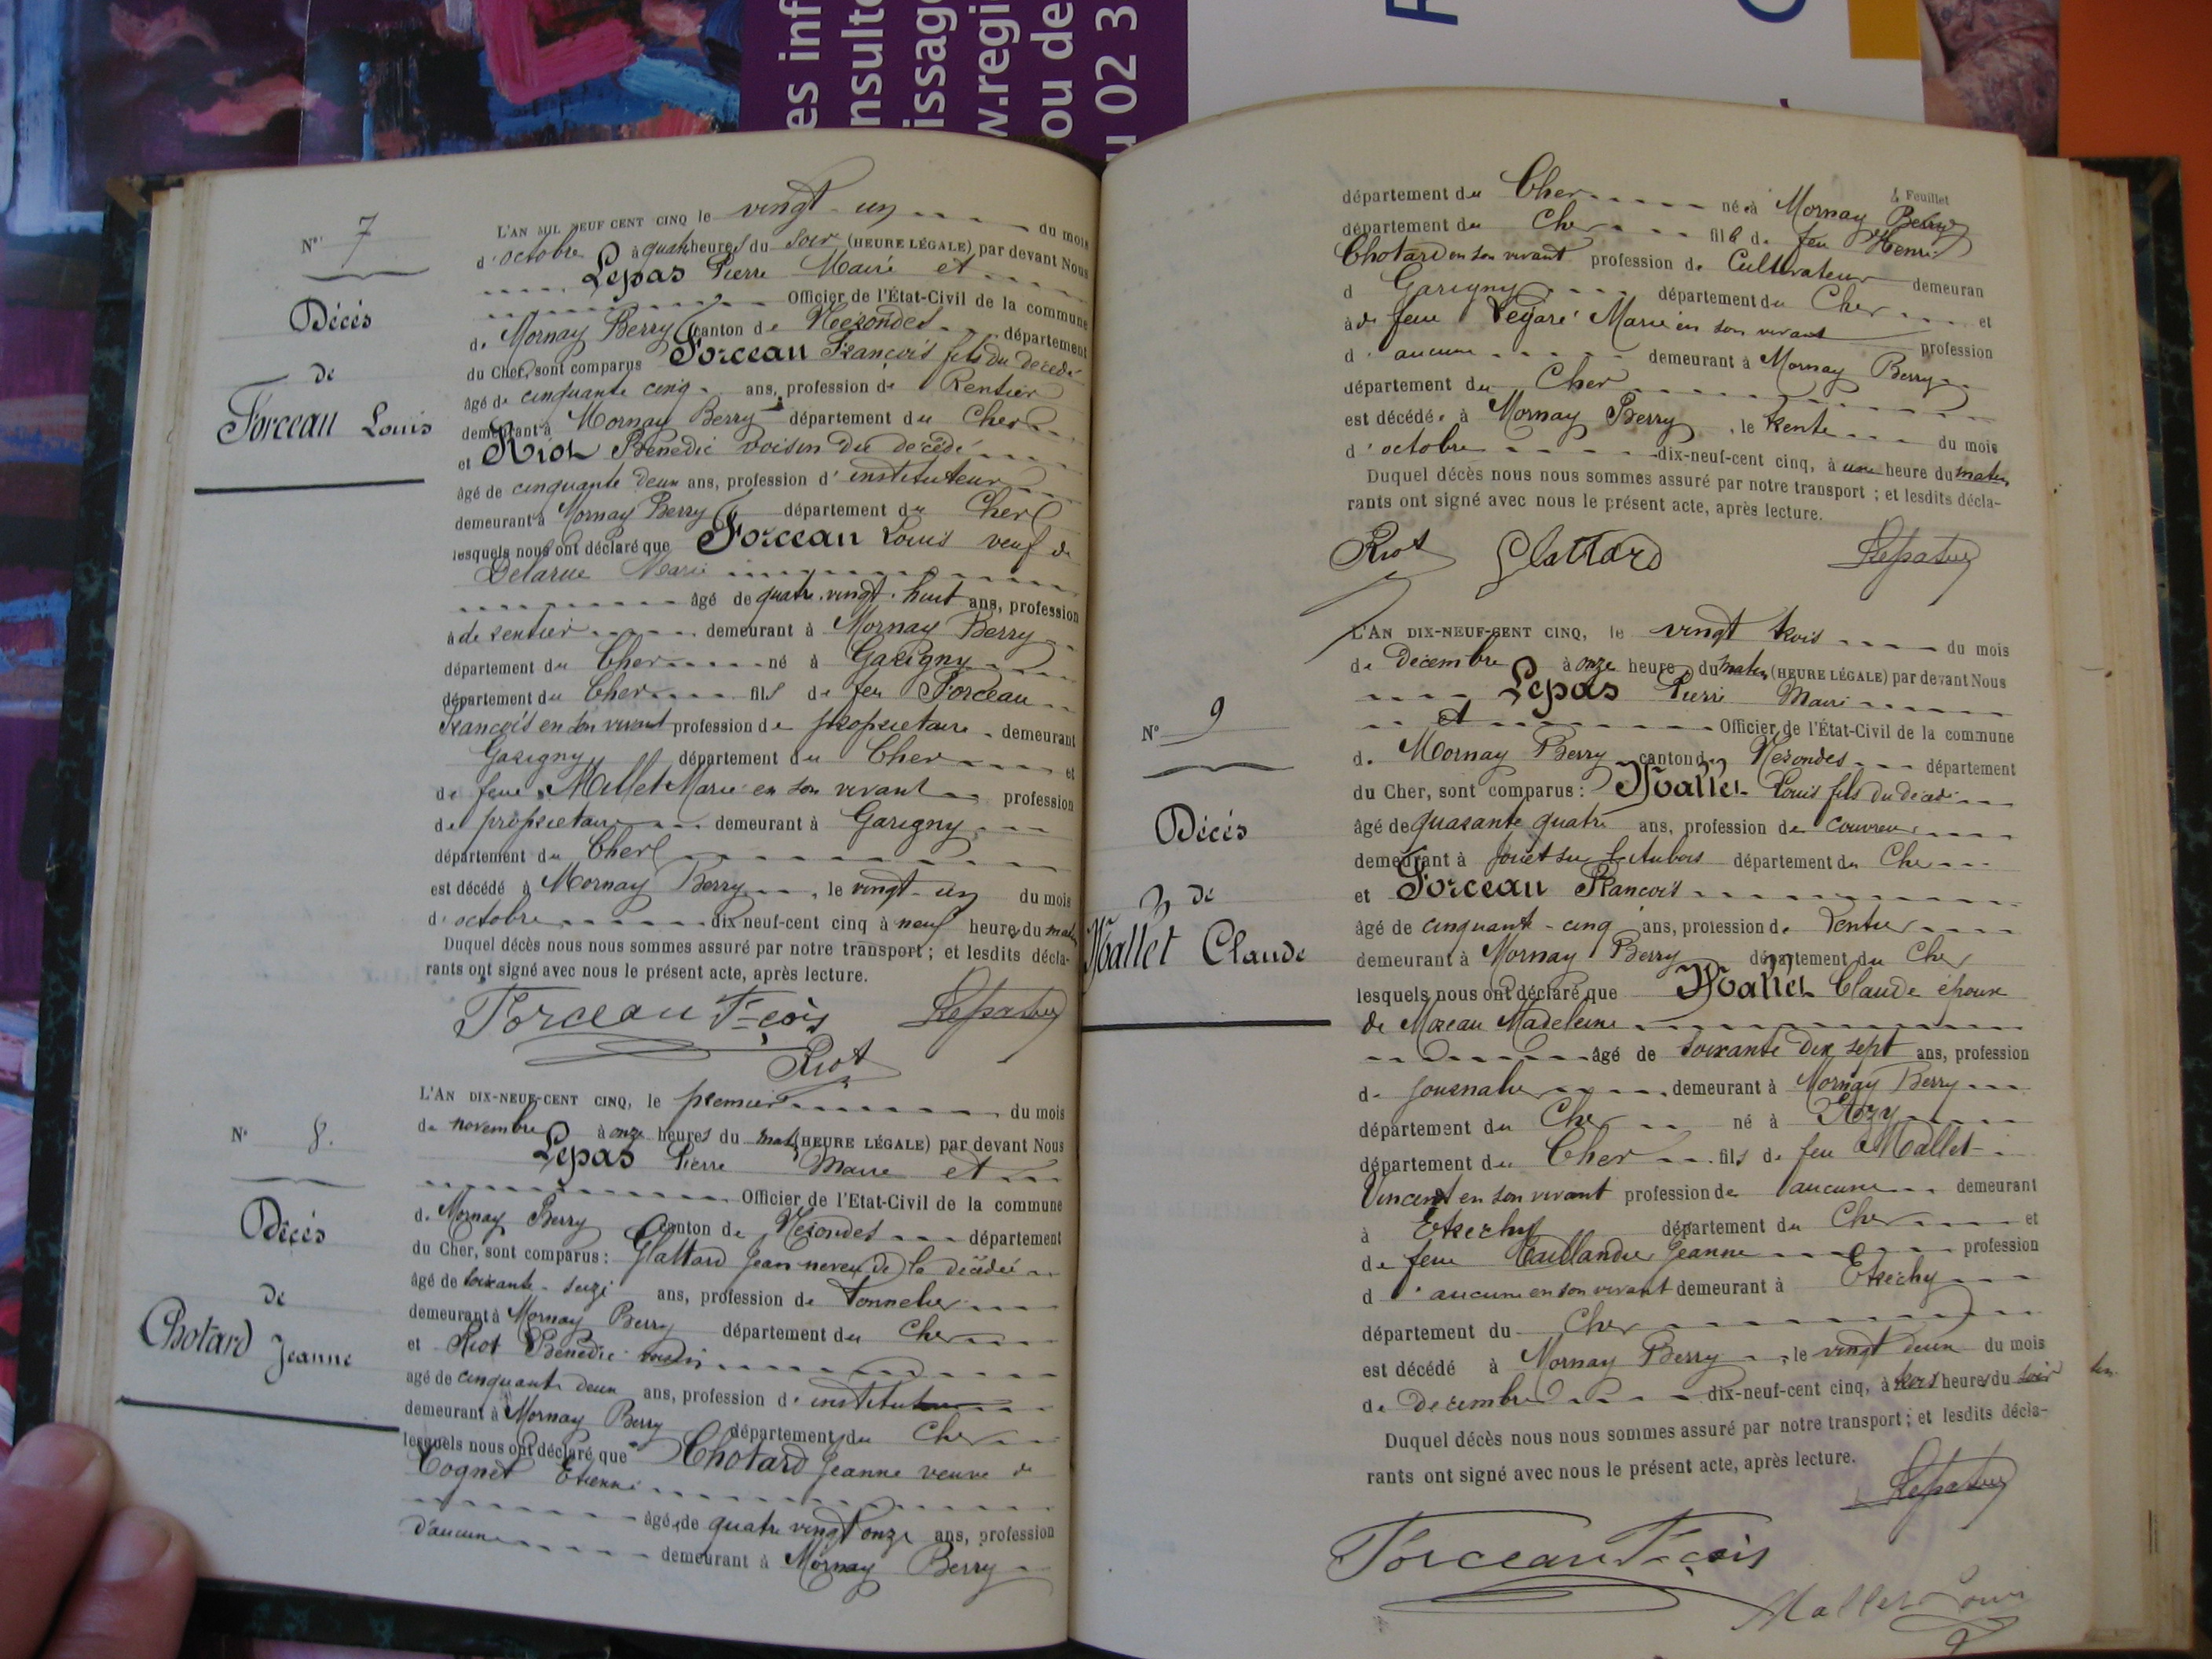 es inf
nsult
issag
w.regi
ou de
u 02 3
N° 7
Décés
de
Forceau Louis
L'AN MIL NEUF CENT CINQ le vingt-un du mois
d'octobre à quatre heures du soir (HEURE LÉGALE) par devant Nous
Lepas Pierre Maire et
Officier de l'État-Civil de la commune
de Mornay Berry canton de Nérondes département
du Cher, sont comparus Forceau François fils du décédé
âgé de cinquante cinq ans, profession de Rentier
demeurant à Mornay Berry département du Cher
et Riot Bénédic voisin du décédé
âgé de cinquante deux ans, profession d'instituteur
demeurant à Mornay Berry département du Cher
lesquels nous ont déclaré que Forceau Louis veuf de
Delarue Marie
âgé de quatre-vingt-huit ans, profession
de rentier demeurant à Mornay Berry
département du Cher né à Garigny
département du Cher fils de feu Forceau
François en son vivant profession de propriétaire demeurant
Garigny département du Cher et
de feue Mallet Marie en son vivant profession
de propriétaire demeurant à Garigny
département du Cher
est décédé à Mornay Berry, le vingt-un du mois
d'octobre dix neuf-cent cinq à neuf heures du matin
Duquel décès nous nous sommes assuré par notre transport ; et lesdits décla-
rants ont signé avec nous le présent acte, après lecture.
Forceau F-çois
Riot
N° 8.
Décés
de
Chotard Jeanne
L'AN DIX-NEUF-CENT CINQ, le premier du mois
de novembre à onze heures du matin (HEURE LÉGALE) par devant Nous
Lepas Pierre Maire et
Officier de l'Etat-Civil de la commune
de Mornay Berry canton de Nérondes département
du Cher, sont comparus : Glattard Jean neveu de la décédée
âgé de soixante-seize ans, profession de tonnelier
demeurant à Mornay Berry département du Cher
et Riot Bénédic voisin
agé de cinquante deux ans, profession d'instituteur
demeurant à Mornay Berry département du Cher
lesquels nous ont déclaré que Chotard Jeanne veuve de
Cognet Etienne
âgée de quatre vingt onze ans, profession
d'aucune demeurant à Mornay Berry
4 Feuillet
département du Cher née à Mornay Berry
département du Cher fille de feu Henri
Chotard en son vivant profession de Cultivateur demeuran
d Garigny département du Cher et
de feue Légaré Marie en son vivant profession
d'aucune demeurant à Mornay Berry
département du Cher
est décédée à Mornay Berry, le trente du mois
d'octobre dix-neuf-cent cinq, à une heure du matin
Duquel décès nous nous sommes assuré par notre transport ; et lesdits décla-
rants ont signé avec nous le présent acte, après lecture.
Riot Glattard
N° 9
Décés
de
Mallet Claude
L'AN DIX-NEUF-CENT CINQ, le vingt trois du mois
de Décembre à onze heure du matin (HEURE LÉGALE) par devant Nous
Lepas Pierre Maire
et Officier de l'État-Civil de la commune
de Mornay Berry canton de Nérondes département
du Cher, sont comparus : Mallet Louis fils du décédé
âgé de quarante quatre ans, profession de couvreur
demeurant à Jouet sur l'Aubois département du Cher
et Forceau François
âgé de cinquante-cinq ans, profession de rentier
demeurant à Mornay Berry département du Cher
lesquels nous ont déclaré que Mallet Claude époux
de Moreau Madeleine
âgé de soixante dix sept ans, profession
de journalier demeurant à Mornay Berry
département du Cher né à Azy
département du Cher fils de feu Mallet
Vincent en son vivant profession de aucune demeurant
à Etrechy département du Cher et
de feue Taillandier Jeanne profession
d'aucune en son vivant demeurant à Etréchy
département du Cher
est décédé à Mornay Berry, le vingt deux du mois
de Décembre dix-neuf-cent cinq, à trois heures du soir
Duquel décès nous nous sommes assuré par notre transport ; et lesdits décla-
rants ont signé avec nous le présent acte, après lecture.
Forceau F-çois
Mallet Louis